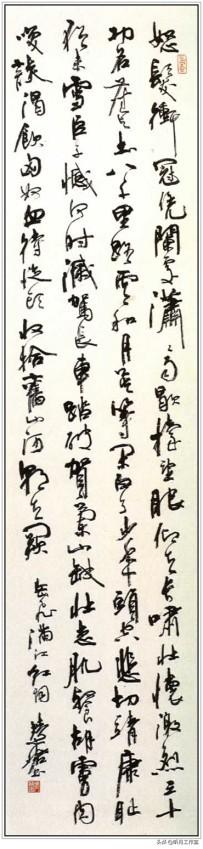 怒髮衝冠凭闌處瀟〻雨歇擡望眼仰天長嘯壯懷激烈三十
功名塵與土八千里路雲和月莫等閑白了少年頭空悲切靖康恥
猶未雪臣子憾何時滅駕長車踏破賀蘭山缺壯志飢餐胡虜肉
笑談渴飲匈奴血待從頭收拾舊山河朝天闕
岳飛滿江紅詞
头条@明月工作室